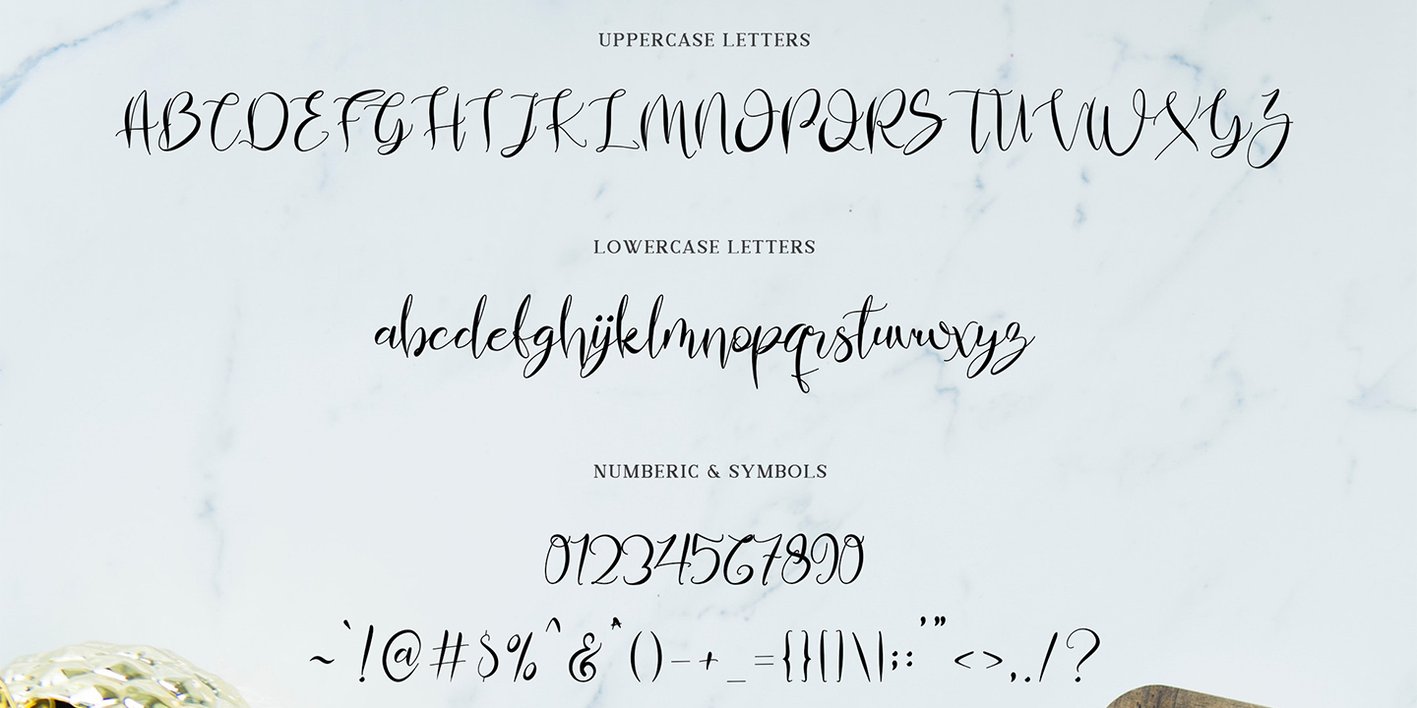 UPPERCASE LETTERS
ABCDEFGHIJKLMNOPQRSTUVWXYZ
LOWERCASE LETTERS
abcdefghijklmnopqrstuvwxyz
NUMBERIC & SYMBOLS
01234567890
~`!@#$%^&*()-+_={}[]\|;:'"<>,./?